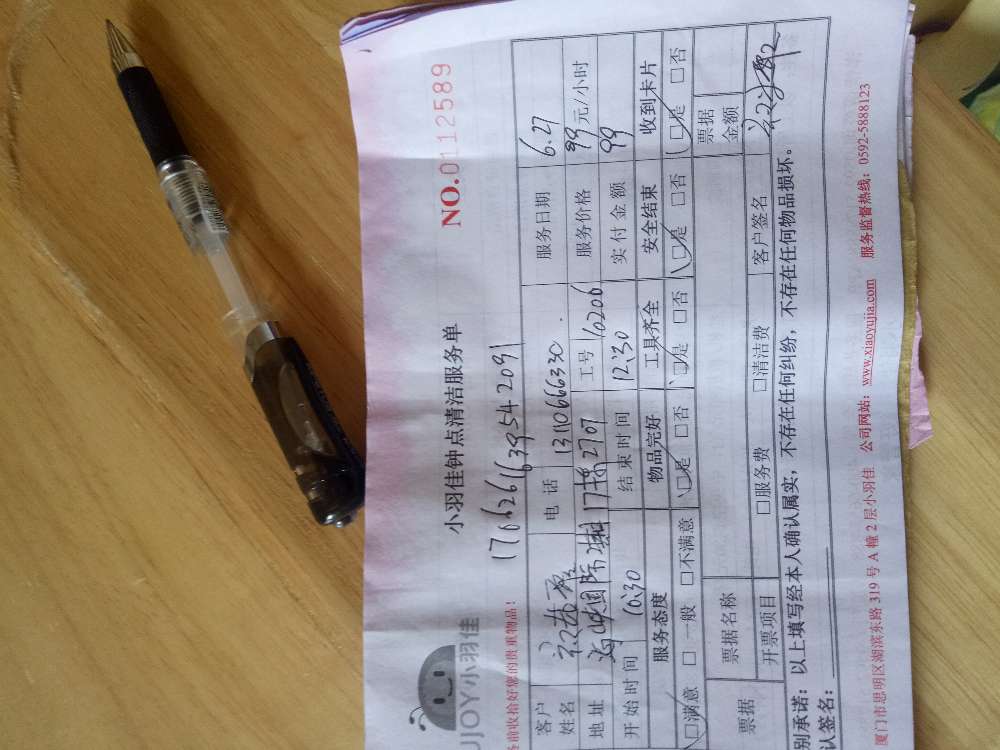 UJOY小羽佳
小羽佳钟点清洁服务单
NO.0112589
务前收拾好您的贵重物品!
17662616639542091
客户姓名 电话 13110666330 服务日期 6.27
地址 国际 17 2707 工号 10206 服务价格 99元/小时
开始时间 10:30 结束时间 12:30 实付金额 99
服务态度 物品完好 工具齐全 安全结束 收到卡片
□满意 □一般 □不满意 □是 □否 □是 □否 □是 □否 □是 □否
票据 票据名称 票据金额
开票项目 □服务费 □清洁费 客户签名
别承诺:以上填写经本人确认属实,不存在任何纠纷,不存在任何物品损坏。
认签名:
厦门市思明区湖滨东路319号A幢2层小羽佳 公司网站:www.xiaoyujia.com 服务监督热线:0592-5888123